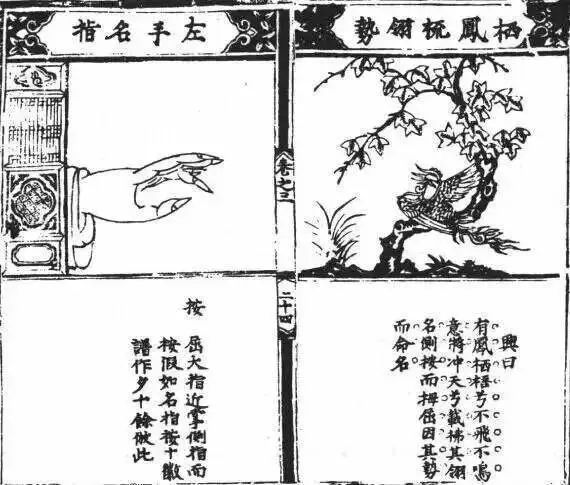 栖鳳梳翎勢
興曰
有鳳栖梧兮不飛不鳴
意將冲天兮載拂其翎
名側按而拇屈因其勢
而命名
卷之三
二十四
左手名指
按
屈大指近掌側指而
按假如名指按十徽
譜作夕十餘倣此